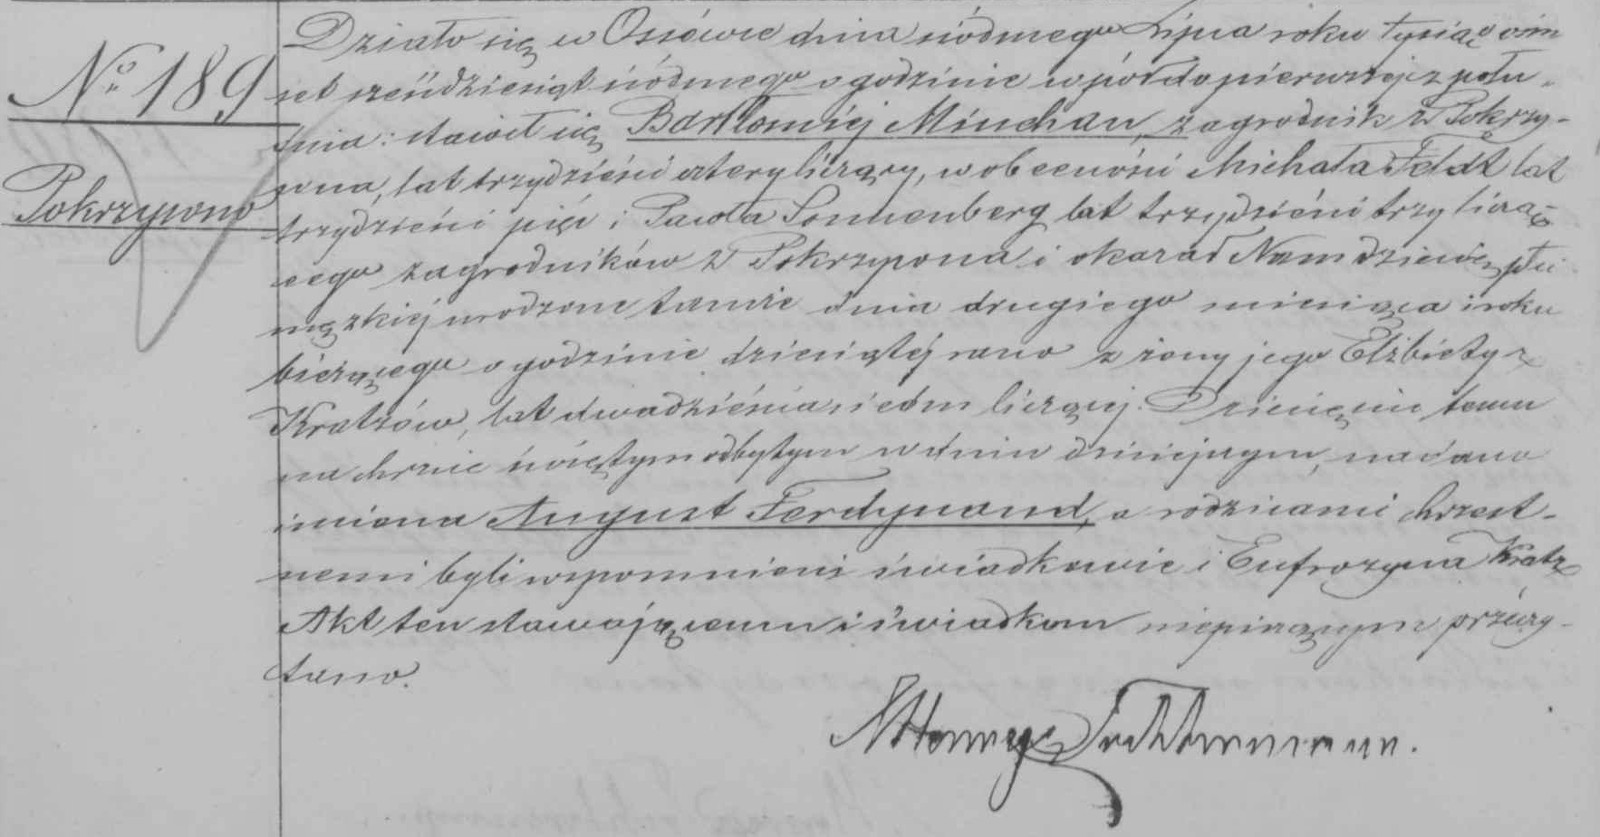 Działo się w Ossówce dnia siódmego Lipca roku tysiąc ośm
№ 189
set sześćdziesiąt siódmego o godzinie wpół do pierwszej z połu-
dnia: stawił się Bartłomiej Minchau, zagrodnik z Pokrzy-
wna, lat trzydzieści cztery liczący, w obecności Michała Feldt lat
Pokrzywno
trzydzieści pięć i Pawła Sonnenberg lat trzydzieści trzy liczą-
cego zagrodników z Pokrzywna i okazał Nam dziecię płci
męzkiej urodzone tamże dnia drugiego miesiąca i roku
bieżącego o godzinie dziesiątej rano z żony jego Elżbiety z
Kratzów, lat dwadzieścia siedm liczącej. Dziecięciu temu
na chrzcie świętym odbytym w dniu dzisiejszym, nadano
imiona August Ferdynand, a rodzicami chrzest-
nemi byli wspomnieni świadkowie i Eufrozyna Kratz
Akt ten stawającemu i świadkom niepiszącym przeczy-
tano.